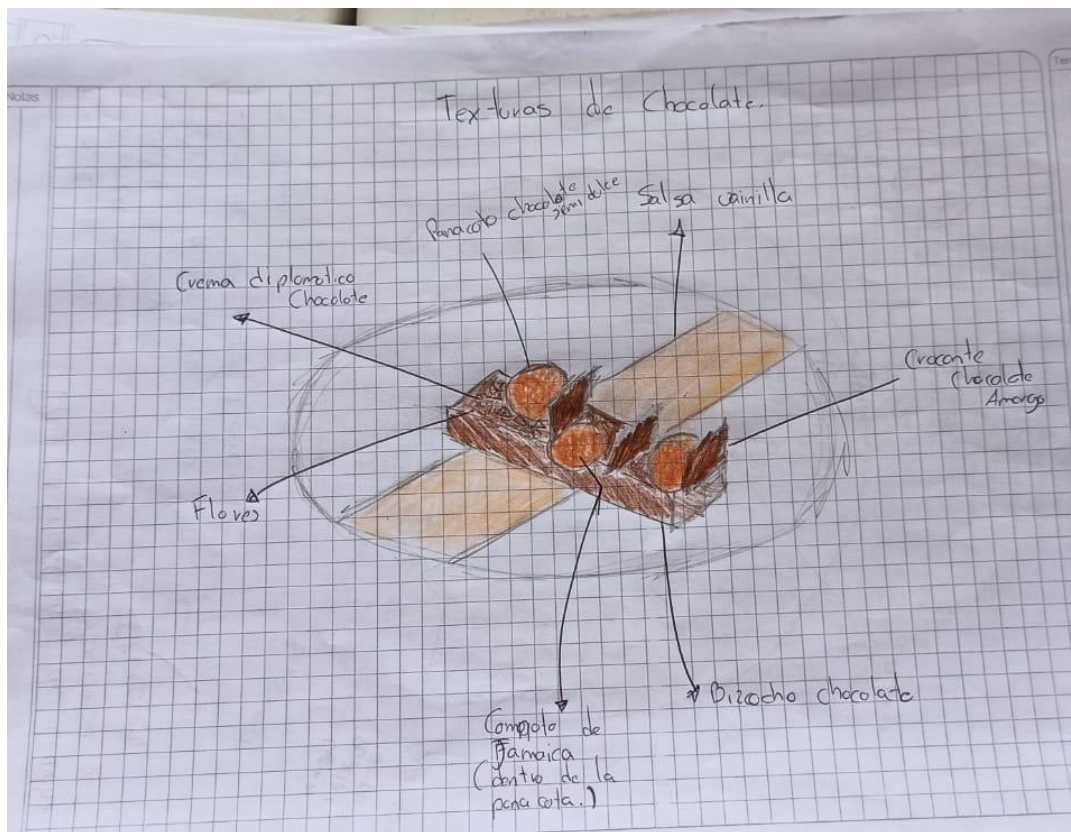 Notas
Texturas de Chocolate.
Panacota chocolate
semidulce
Salsa vainilla
Crema diplomatica
Chocolate
Crocante
Chocolate
Amargo
Flores
Bizcocho chocolate
Compota de
Jamaica
(dentro de la
panacota.)